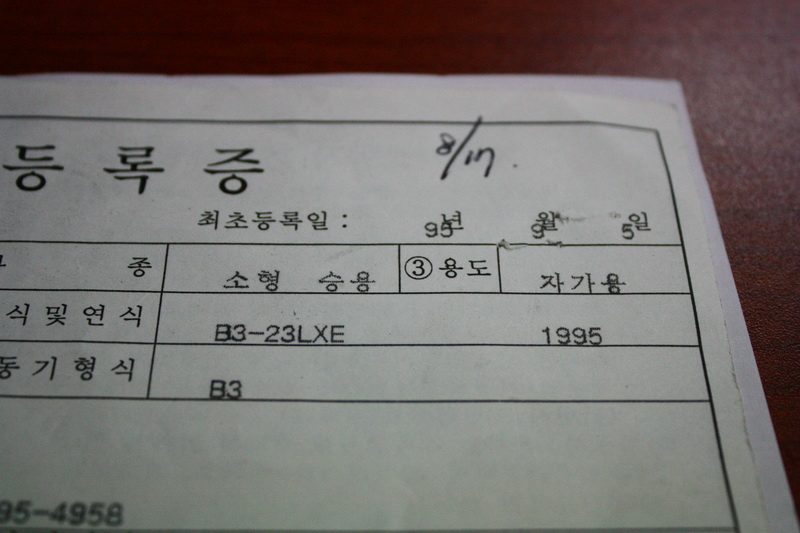 등록증
8/17.
최초등록일 : 95년 9월 5일
종 소형 승용 ③용도 자가용
식 및 연 식 B3-23LXE 1995
동 기 형 식 B3
95-4958